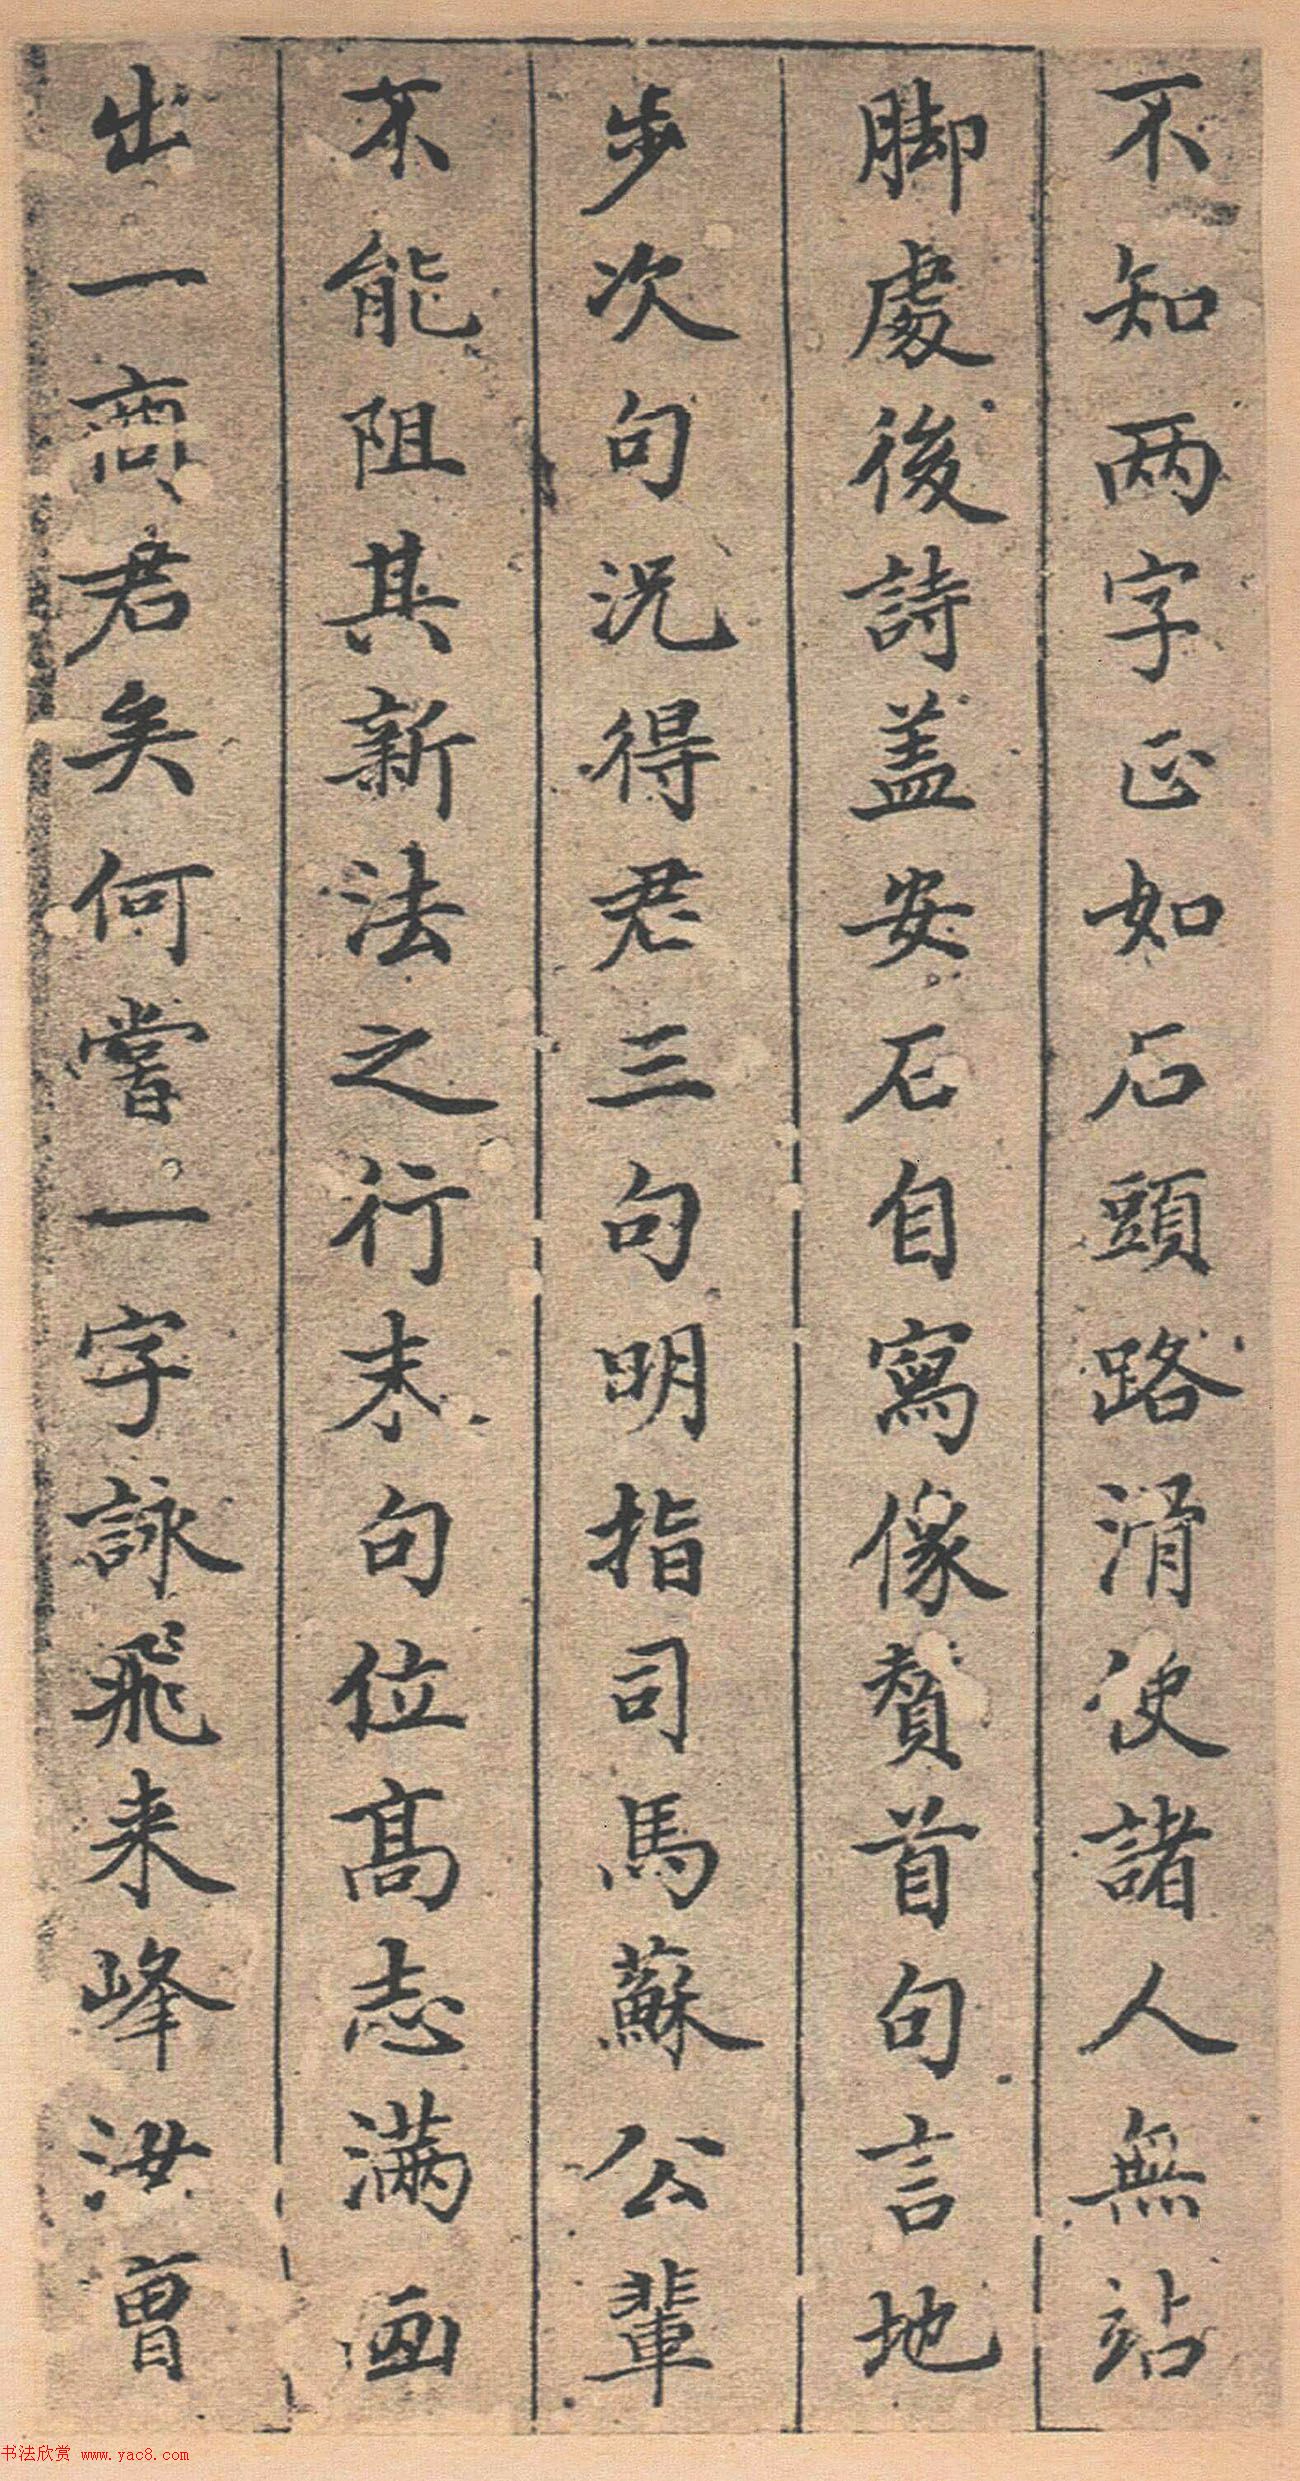 不知两字正如石頭路滑使諸人無站
脚處後詩盖安石自寫像賛首句言地
步次句况得君三句明指司馬蘇公輩
不能阻其新法之行末句位高志满画
出一商君矣何嘗一字詠飛来峰汝曾
书法欣赏 www.yac8.com